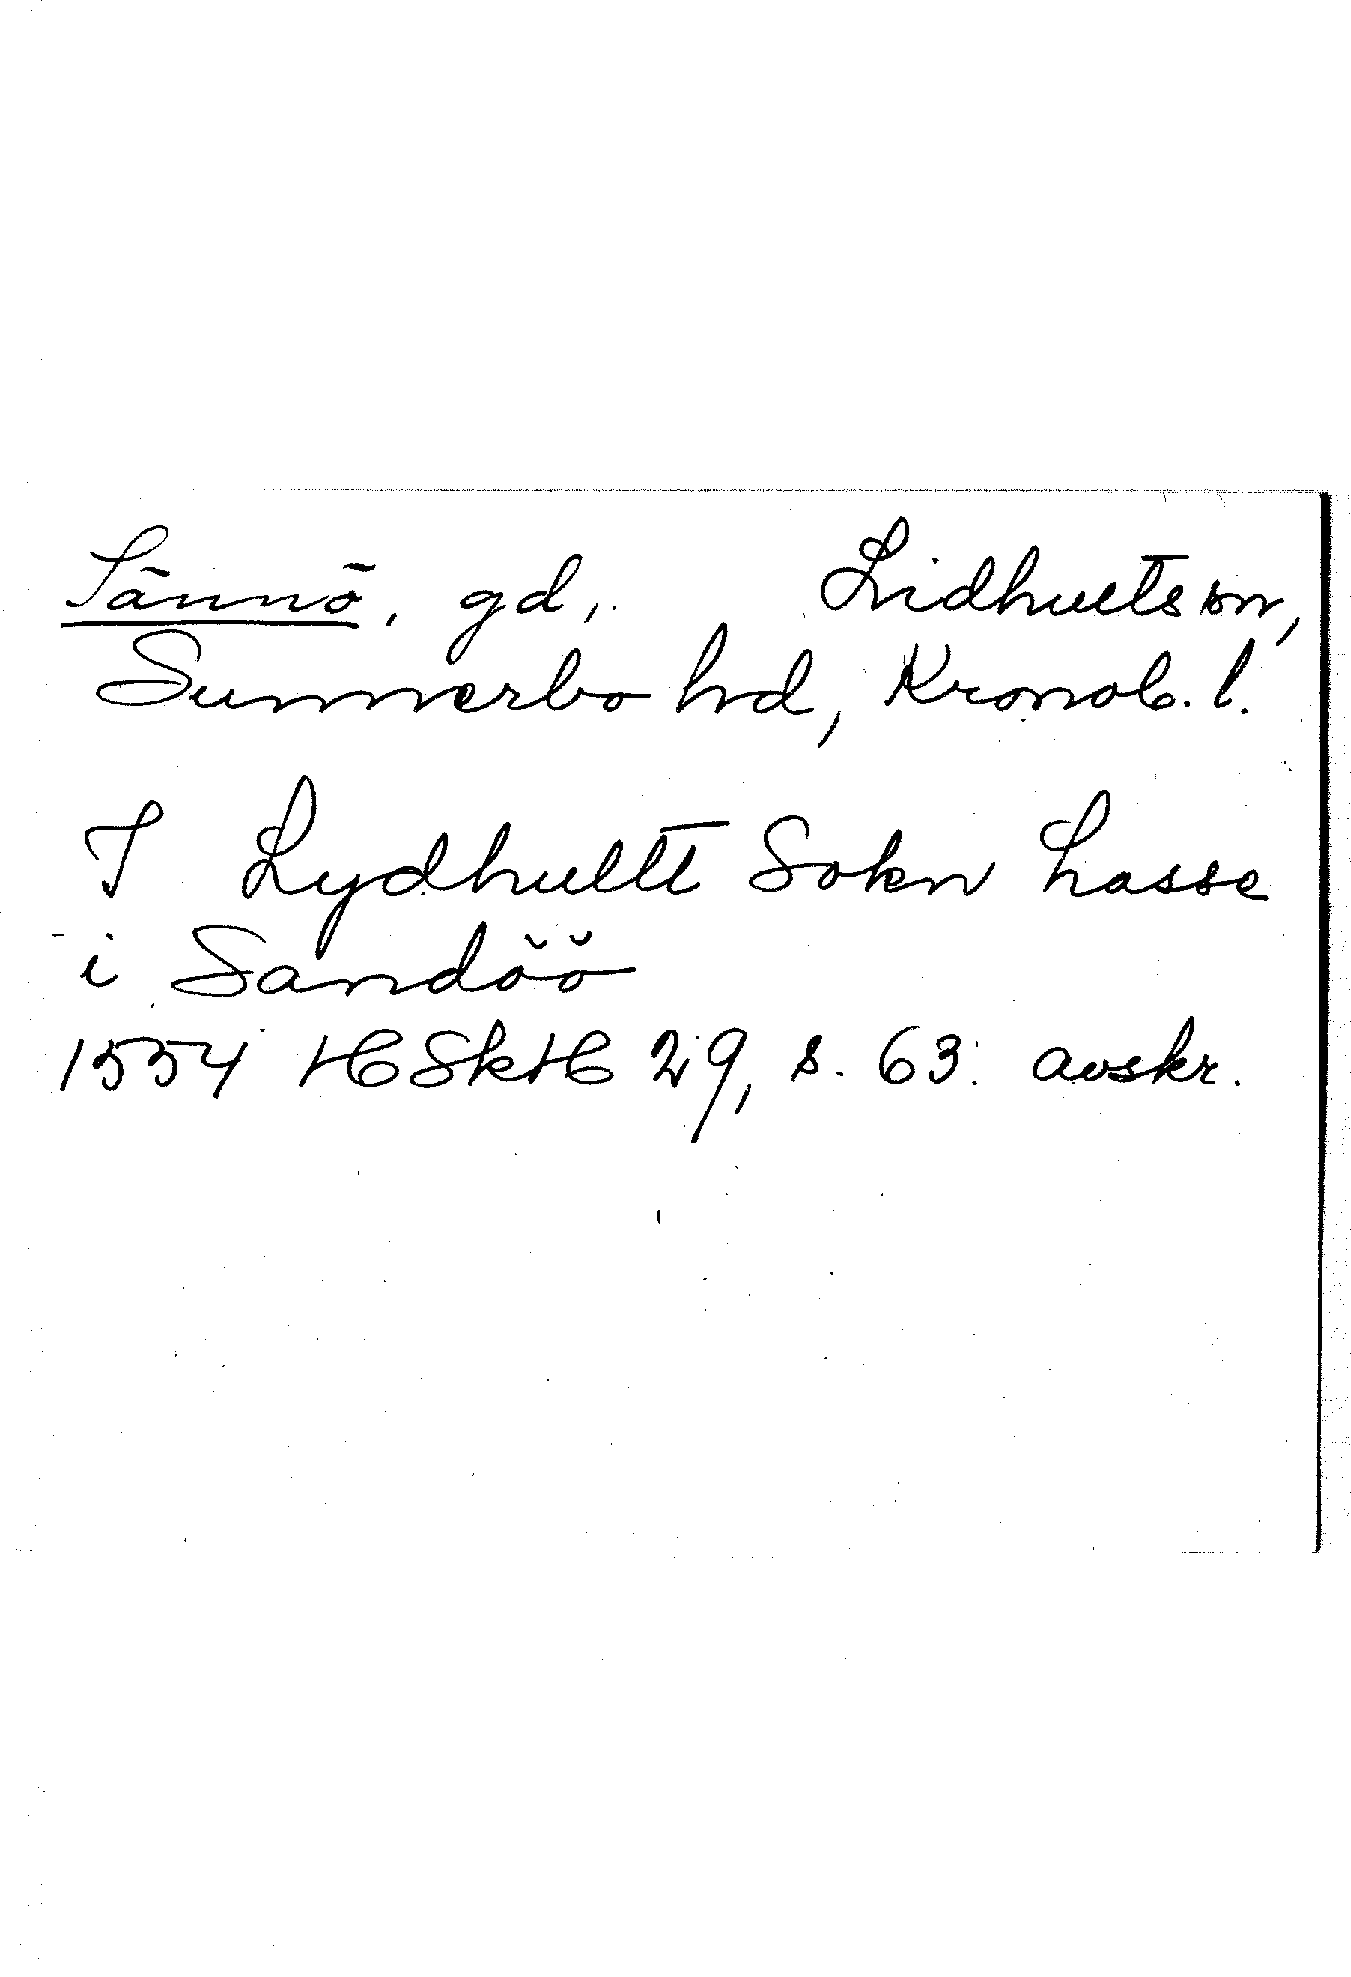 Sännö, gd, Lidhults sn,
Sunnerbo hd, Kronob. l.
I Lydhultt Sokn Lasse
i Sandöö
1554 HSkH 29, s. 63. avskr.